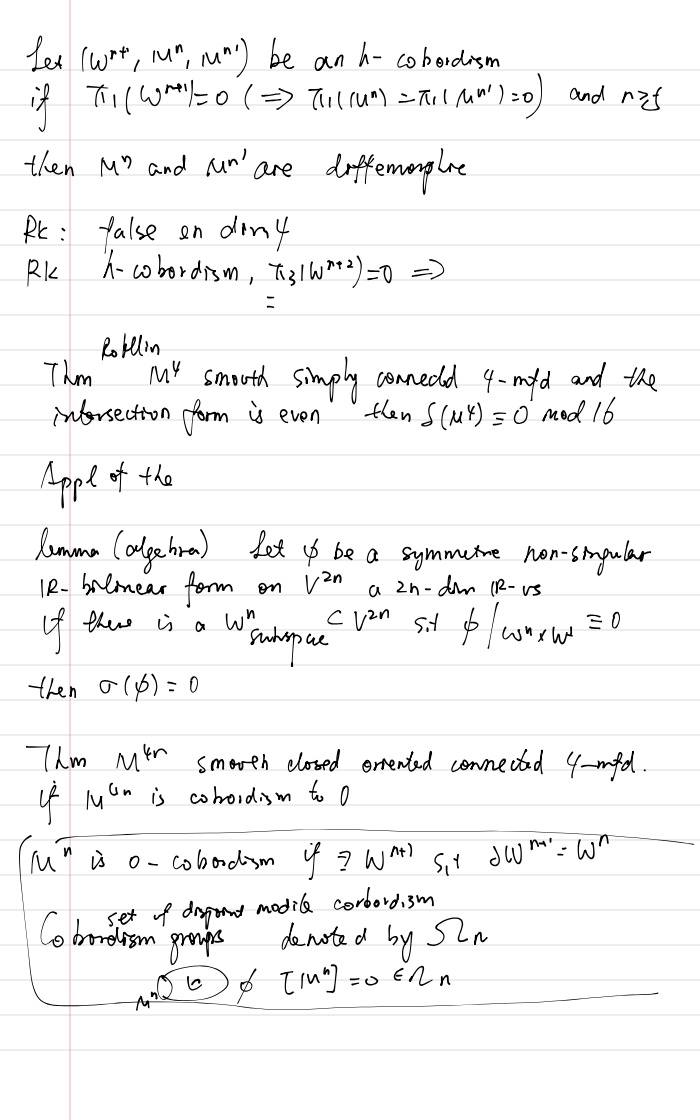 Let (W^{n+1}, M^n, M^{n'}) be an h-cobordism
if π_1(W^{n+1})=0 (=> π_1(M^n) = π_1(M^{n'})=0) and n≥5
then M^n and M^{n'} are diffemorphic
Rk: false in dim 4
Rk h-cobordism, π_3(W^{n+2})=0 =>
=
Rohlin
Thm M^4 smooth simply connectd 4-mfd and the
intersection form is even then S(M^4) ≡ 0 mod 16
Appl of the
lemma (algebra) Let φ be a symmetric non-singular
IR-bilinear form on V^{2n} a 2n-dim IR-vs
If there is a W^n subspace ⊂ V^{2n} s.t φ|_{W^n×W^n} ≡ 0
then σ(φ) = 0
Thm M^{4n} smooth closed oriented connected 4-mfd.
if M^{4n} is cobordism to 0
M^n is 0-cobordism if ∃ W^{n+1} s.t ∂W^{n+1} = W^n
set of disjoint modilo corbordism
Cobordism groups denoted by Ω_n
M^n φ [M^n] = 0 ∈ Ω_n